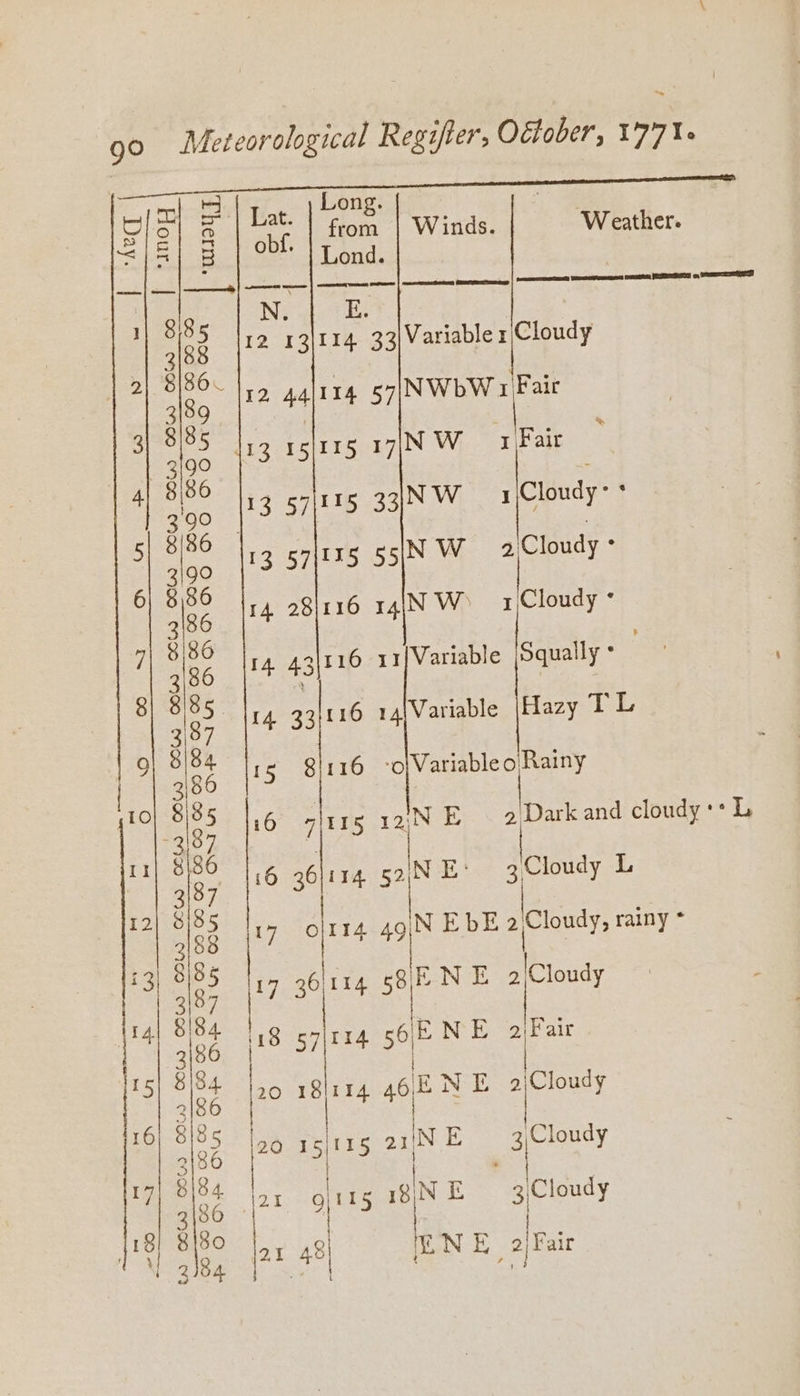 90 Meteorological Regiſter, October, 1771.
Day. Hour. Therm. Lat. obſ. Long. from Lond. Winds. Weather.
N. E.
1 8 85 12 13 114 33 Variable 1 Cloudy
3 88
2 8 86 12 44 114 57 NWbW 1 Fair
3 89
3 8 85 13 15 115 17 N W 1 Fair
3 90
4 8 86 13 57 115 33 N W 1 Cloudy * *
3 90
5 8 86 13 57 115 55 N W 2 Cloudy *
3 90
6 8 86 14 28 116 14 N W 1 Cloudy *
3 86
7 8 86 14 43 116 11 Variable Squally *
3 86
8 8 85 14 33 116 14 Variable Hazy T L
3 87
9 8 84 15 8 116 0 Variable 0 Rainy
3 86
10 8 85 16 7 115 12 N E 2 Dark and cloudy * * L
3 87
11 8 86 16 36 114 52 N E 3 Cloudy L
3 87
12 8 85 17 0 114 49 N E b E 2 Cloudy, rainy *
3 88
13 8 85 17 36 114 58 E N E 2 Cloudy
3 87
14 8 84 18 57 114 56 E N E 2 Fair
3 86
15 8 84 20 18 114 46 E N E 2 Cloudy
3 86
16 8 85 20 15 115 21 N E 3 Cloudy
3 86
17 8 84 21 9 115 18 N E 3 Cloudy
3 86
18 8 80 21 48 E N E 2 Fair
3 84